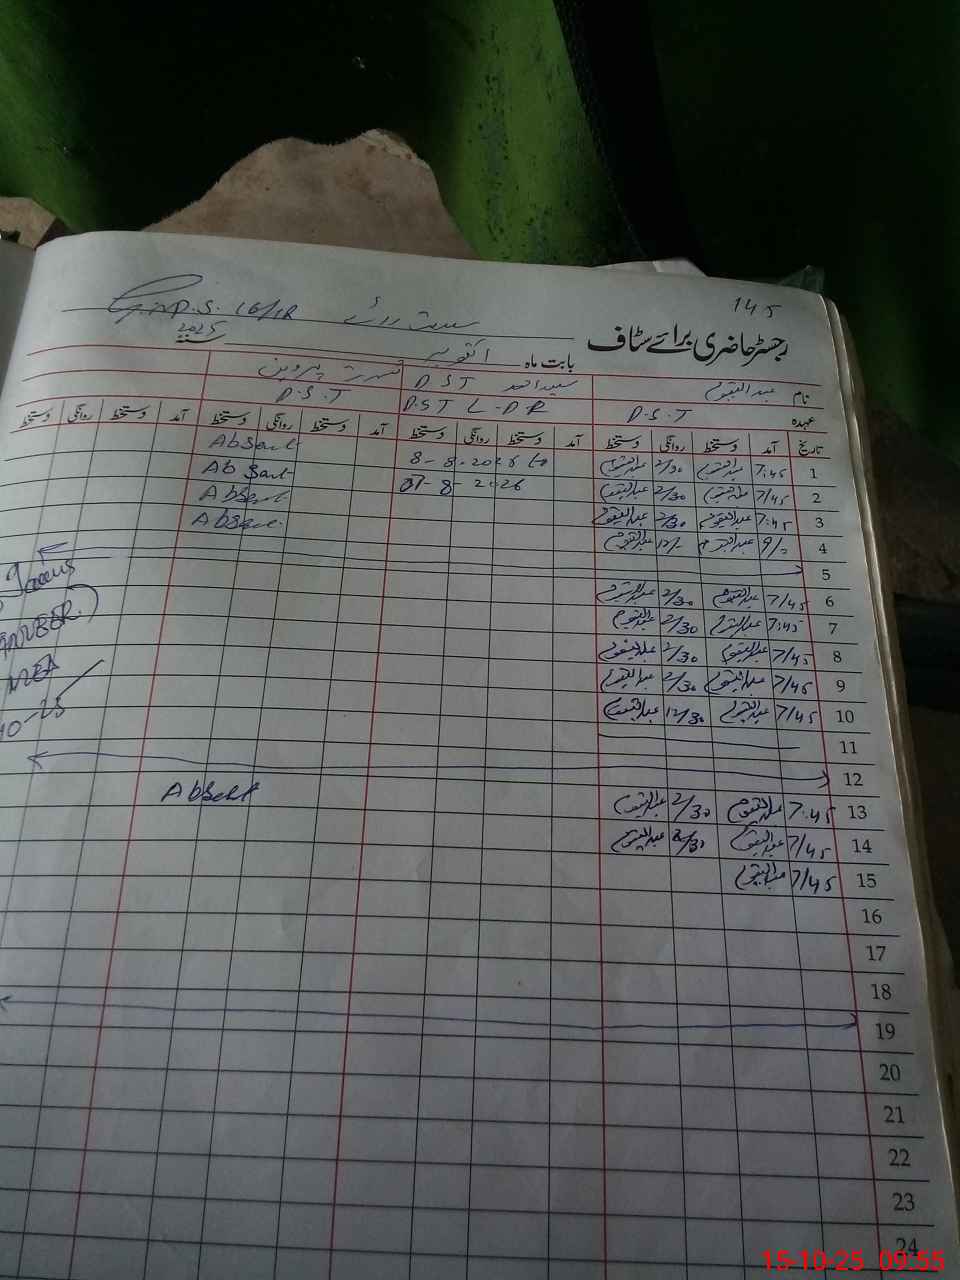 145
G.M.P.S. 16/1R
رجسٹر حاضری برائے سٹاف
بابت ماہ اکتوبر سنہ 2025
نام عبدالقیوم سعید احمد PST نسرت پروین
عہدہ P.S.T P.S.T L-P.R P.S.T
تاریخ آمد دستخط روانگی دستخط آمد دستخط روانگی دستخط آمد دستخط روانگی دستخط آمد دستخط روانگی دستخط
1 7:45 عبدالقیوم 2/30 عبدالقیوم 8-8-2025 to Absent
2 7/45 عبدالقیوم 2/30 عبدالقیوم 07-8-2026 Absent
3 7:45 عبدالقیوم 2/30 عبدالقیوم Absent
4 9/- عبدالقیوم 12/- عبدالقیوم Absent
5
6 7/45 عبدالقیوم 2/30 عبدالقیوم
7 7:45 عبدالقیوم 2/30 عبدالقیوم
8 7/45 عبدالقیوم 2/30 عبدالقیوم
9 7/45 عبدالقیوم 2/30 عبدالقیوم
10 7/45 عبدالقیوم 12/30 عبدالقیوم
11
12
13 7:45 عبدالقیوم 2/30 عبدالقیوم Absent
14 7/45 عبدالقیوم 2/30 عبدالقیوم
15 7/45 عبدالقیوم
16
17
18
19
20
21
22
23
24
15-10-25 09:55